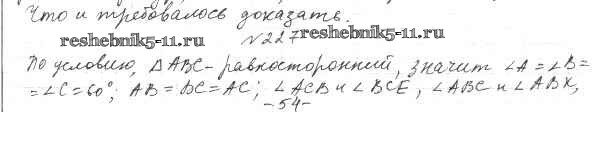 Что и требовалось доказать.
reshebnik5-11.ru №227 reshebnik5-11.ru
По условию, ΔABC - равносторонний, значит ∠A = ∠B =
= ∠C = 60°; AB = BC = AC; ∠ACB и ∠BCE, ∠ABC и ∠ABX,
- 54 -